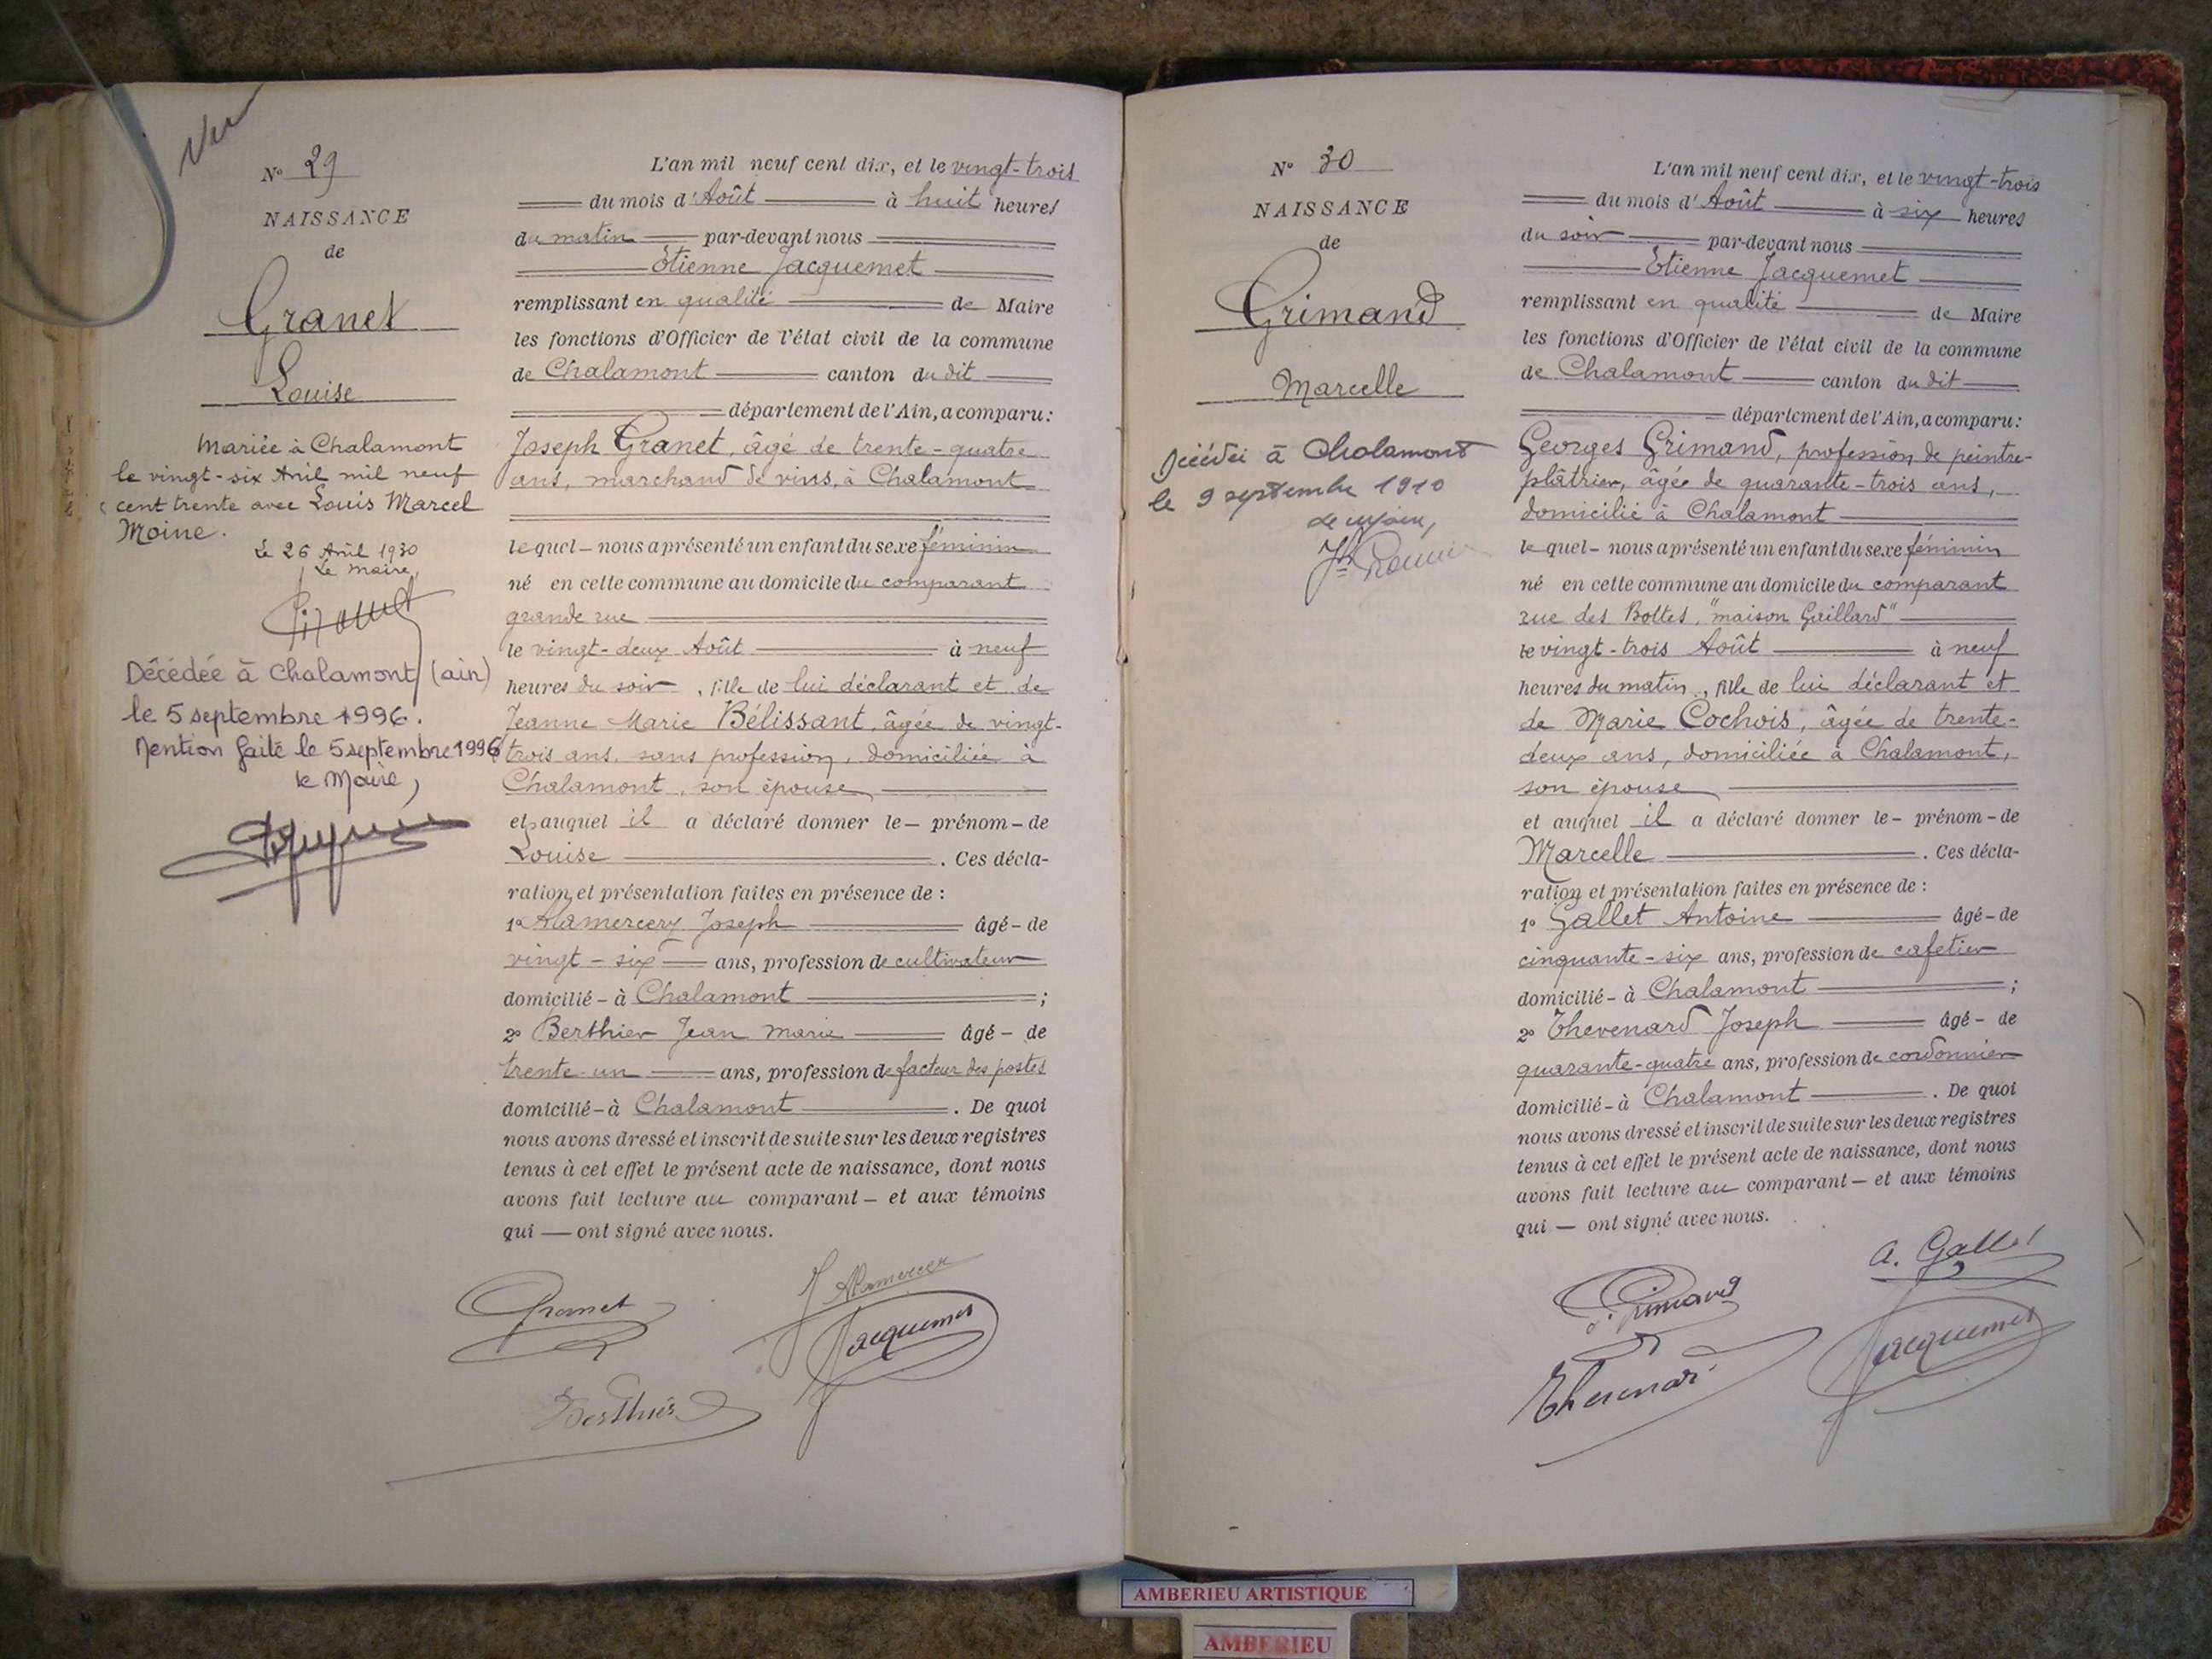 Vu
N° 29
NAISSANCE
de
Granet
Louise
Mariée à Chalamont
le vingt-six Avril mil neuf
cent trente avec Louis Marcel
Moine.
Le 26 Avril 1930
Le Maire,
Décédée à Chalamont (ain)
le 5 septembre 1996.
Mention faite le 5 septembre 1996
le Maire,
L'an mil neuf cent dix, et le vingt-trois
du mois d'Août à huit heures
du matin par-devant nous
Etienne Jacquemet
remplissant en qualité de Maire
les fonctions d'Officier de l'état civil de la commune
de Chalamont canton du dit
département de l'Ain, a comparu :
Joseph Granet, âgé de trente-quatre
ans, marchand de vins, à Chalamont
lequel – nous a présenté un enfant du sexe féminin
né en cette commune au domicile du comparant
grande rue
le vingt-deux Août à neuf
heures du soir, fille de lui déclarant et de
Jeanne Marie Bélissant, âgée de vingt-
trois ans, sans profession, domiciliée à
Chalamont, son épouse
et auquel il a déclaré donner le – prénom – de
Louise. Ces décla-
ration et présentation faites en présence de :
1° Alamercery Joseph âgé – de
vingt-six ans, profession de cultivateur
domicilié – à Chalamont ;
2° Berthier Jean Marie âgé – de
trente-un ans, profession de facteur des postes
domicilié – à Chalamont. De quoi
nous avons dressé et inscrit de suite sur les deux registres
tenus à cet effet le présent acte de naissance, dont nous
avons fait lecture au comparant – et aux témoins
qui — ont signé avec nous.
Granet
J Alamercer
Jacquemet
Berthier
N° 30
NAISSANCE
de
Grimand
Marcelle
Décédée à Chalamont
le 9 septembre 1910
L'an mil neuf cent dix, et le vingt-trois
du mois d'Août à six heures
du soir par-devant nous
Etienne Jacquemet
remplissant en qualité de Maire
les fonctions d'Officier de l'état civil de la commune
de Chalamont canton du dit
département de l'Ain, a comparu :
Georges Grimand, profession de peintre-
plâtrier, âgée de quarante-trois ans,
domicilié à Chalamont
lequel – nous a présenté un enfant du sexe féminin
né en cette commune au domicile du comparant
rue des Bottes, "maison Gaillard"
le vingt-trois Août à neuf
heures du matin, fille de lui déclarant et
de Marie Cochois, âgée de trente-
deux ans, domiciliée à Chalamont,
son épouse
et auquel il a déclaré donner le – prénom – de
Marcelle. Ces décla-
ration et présentation faites en présence de :
1° Gallet Antoine âgé – de
cinquante-six ans, profession de cafetier
domicilié – à Chalamont ;
2° Thevenard Joseph âgé – de
quarante-quatre ans, profession de cordonnier
domicilié – à Chalamont. De quoi
nous avons dressé et inscrit de suite sur les deux registres
tenus à cet effet le présent acte de naissance, dont nous
avons fait lecture au comparant – et aux témoins
qui — ont signé avec nous.
A. Gallet
G. Grimand
Jacquemet
Thevenard
AMBERIEU ARTISTIQUE
AMBERIEU